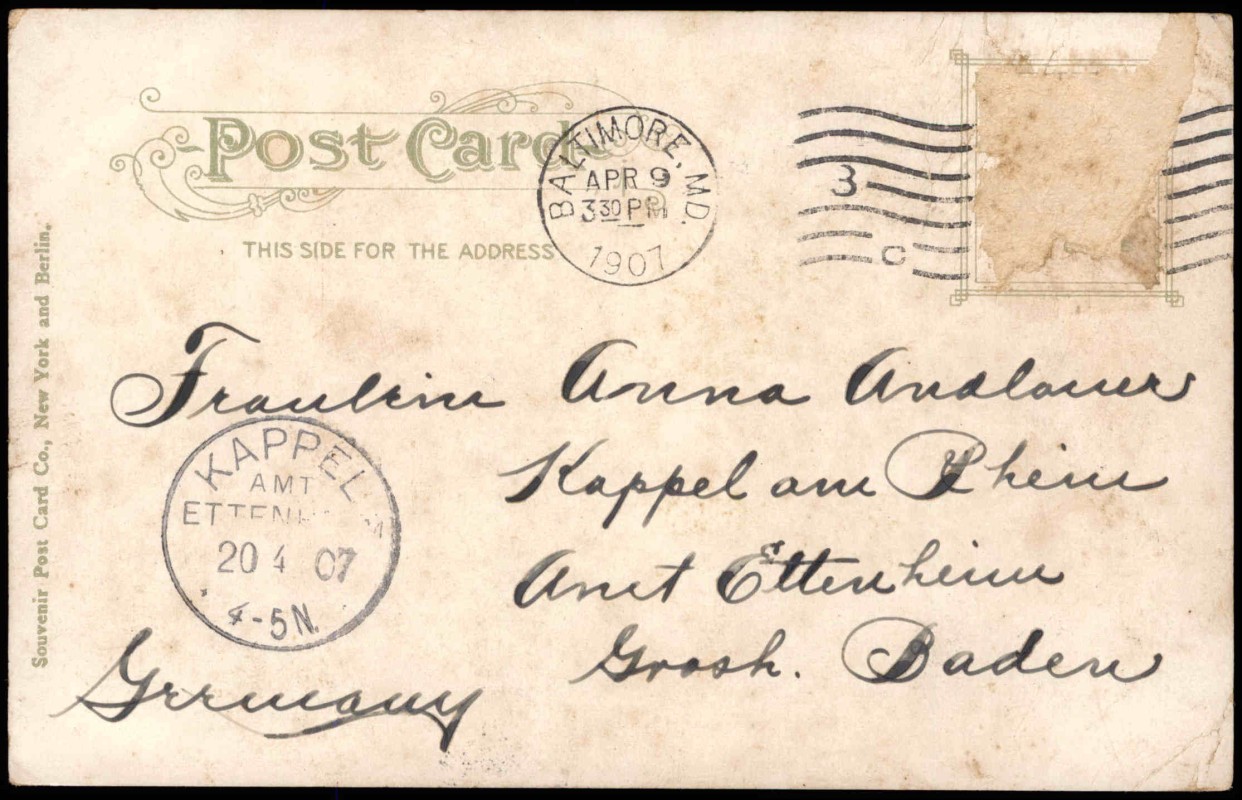 Post Card
THIS SIDE FOR THE ADDRESS
BALTIMORE, MD.
APR 9
3 30 PM
1907
3
C
Souvenir Post Card Co., New York and Berlin.
Fraulein Anna Andlauer
Kappel am Rhein
Amt Ettenheim
Grosh. Baden
Germany
KAPPEL
AMT
20 4 07
4-5N.